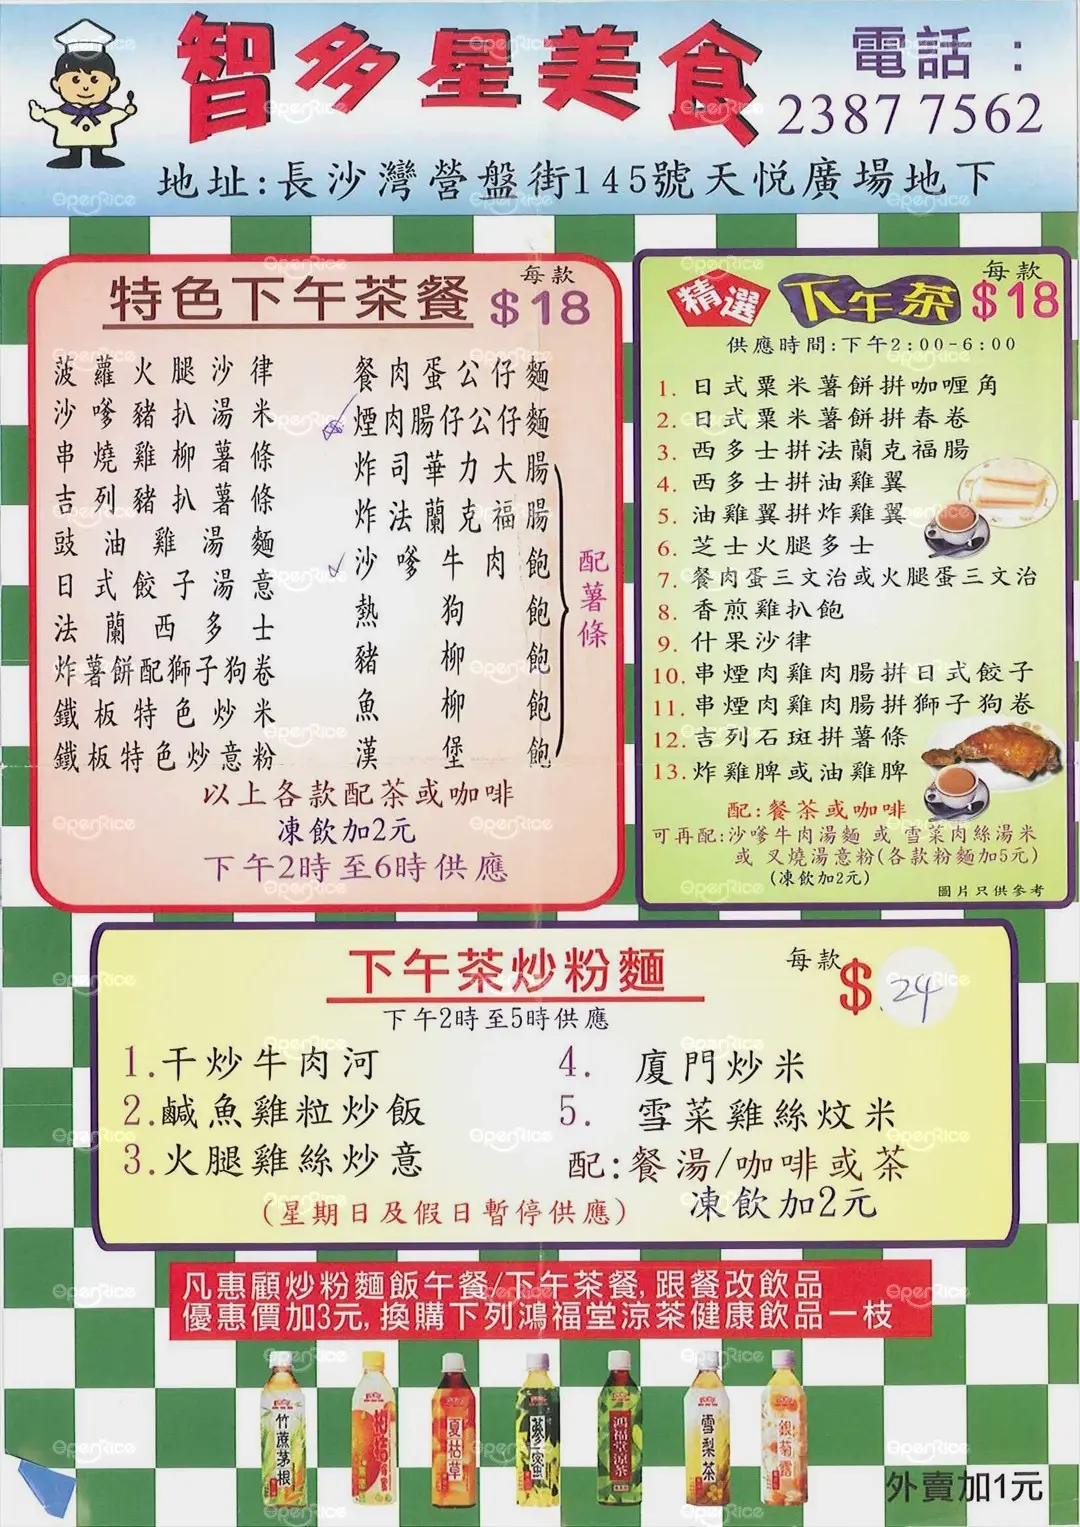 智多星美食
電話：
2387 7562
地址:長沙灣營盤街145號天悅廣場地下
特色下午茶餐
每款
$18
菠蘿火腿沙律
沙嗲豬扒湯米
串燒雞柳薯條
吉列豬扒薯條
豉油雞湯麵
日式餃子湯意
法蘭西多士
炸薯餅配獅子狗卷
鐵板特色炒米
鐵板特色炒意粉
餐肉蛋公仔麵
煙肉腸仔公仔麵
炸司華力大腸
炸法蘭克福腸
沙嗲牛肉飽
熱狗飽
豬柳飽
魚柳飽
漢堡飽
配薯條
以上各款配茶或咖啡
凍飲加2元
下午2時至6時供應
精選
下午茶
每款
$18
供應時間:下午2:00-6:00
1. 日式粟米薯餅拼咖喱角
2. 日式粟米薯餅拼春卷
3. 西多士拼法蘭克福腸
4. 西多士拼油雞翼
5. 油雞翼拼炸雞翼
6. 芝士火腿多士
7. 餐肉蛋三文治或火腿蛋三文治
8. 香煎雞扒飽
9. 什果沙律
10. 串煙肉雞肉腸拼日式餃子
11. 串煙肉雞肉腸拼獅子狗卷
12. 吉列石斑拼薯條
13. 炸雞脾或油雞脾
配:餐茶或咖啡
可再配:沙嗲牛肉湯麵 或 雪菜肉絲湯米
或 叉燒湯意粉(各款粉麵加5元)
(凍飲加2元)
圖片只供參考
下午茶炒粉麵
每款
$24
下午2時至5時供應
1.干炒牛肉河
2.鹹魚雞粒炒飯
3.火腿雞絲炒意
4. 廈門炒米
5. 雪菜雞絲炆米
配:餐湯/咖啡或茶
凍飲加2元
(星期日及假日暫停供應)
凡惠顧炒粉麵飯午餐/下午茶餐,跟餐改飲品
優惠價加3元,換購下列鴻福堂涼茶健康飲品一枝
竹蔗茅根
夏枯草
鴻福堂涼茶
雪梨茶
銀菊露
外賣加1元